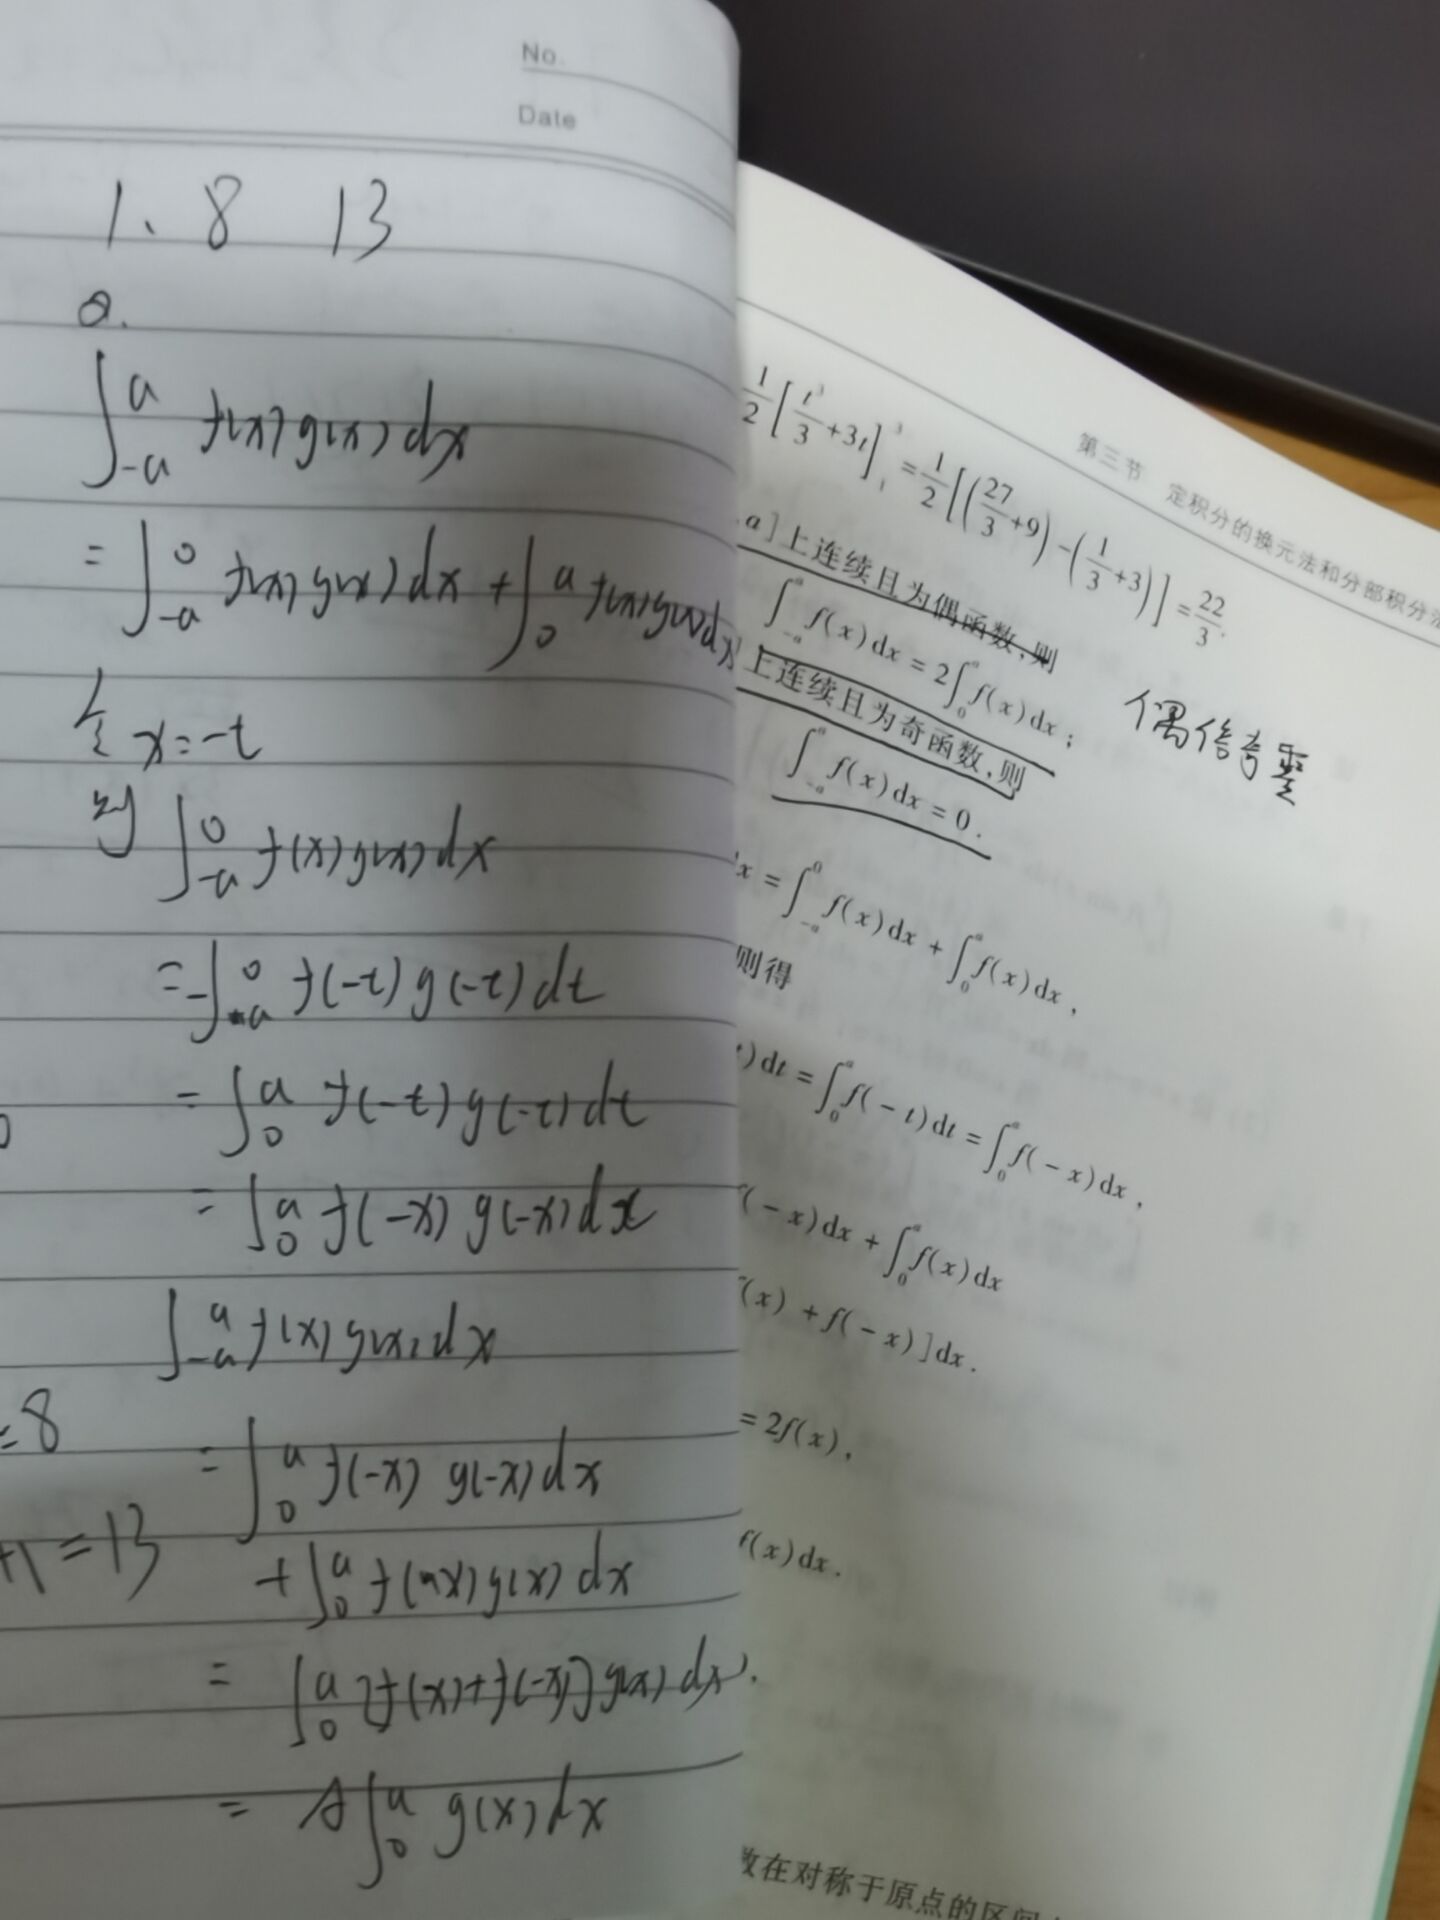 No.
Date
1、 8 13
a.
∫_{-a}^{a} f(x)g(x)dx
= ∫_{-a}^{0} f(x)g(x)dx + ∫_{0}^{a} f(x)g(x)dx
令 x=-t
则 ∫_{-a}^{0} f(x)g(x)dx
= -∫_{a}^{0} f(-t)g(-t)dt
= ∫_{0}^{a} f(-t)g(-t)dt
= ∫_{0}^{a} f(-x)g(-x)dx
∫_{-a}^{a} f(x)g(x)dx
=8
= ∫_{0}^{a} f(-x) g(-x)dx
+1=13
+∫_{0}^{a} f(x)g(x)dx
= ∫_{0}^{a} [f(x)+f(-x)]g(x)dx.
= A∫_{0}^{a} g(x)dx
第三节 定积分的换元法和分部积分法
1/2[t³/3+3t]_{1}^{3}=1/2[(27/3+9)-(1/3+3)]=22/3.
,a]上连续且为偶函数,则
∫_{-a}^{a} f(x)dx = 2∫_{0}^{a} f(x)dx;
偶倍奇零
上连续且为奇函数,则
∫_{-a}^{a} f(x)dx = 0.
dx = ∫_{-a}^{0} f(x)dx + ∫_{0}^{a} f(x)dx,
则得
t)dt = ∫_{0}^{a} f(-t)dt = ∫_{0}^{a} f(-x)dx,
f(-x)dx + ∫_{0}^{a} f(x)dx
f(x) + f(-x)]dx.
= 2f(x),
f(x)dx.
数在对称于原点的区间